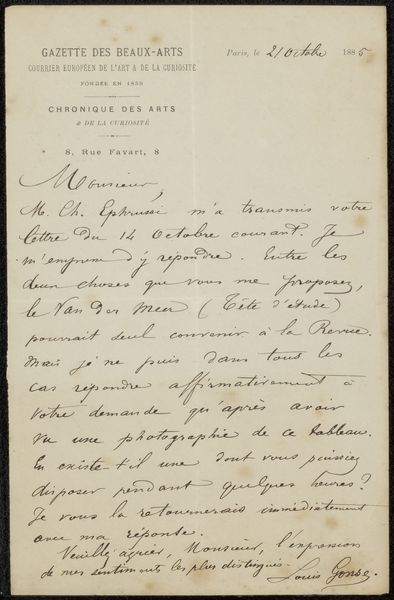 GAZETTE DES BEAUX-ARTS
COURRIER EUROPÉEN DE L'ART & DE LA CURIOSITÉ
FONDÉE EN 1859
CHRONIQUE DES ARTS
& DE LA CURIOSITÉ
8, Rue Favart, 8
Paris, le 21 Octobre 1885
Monsieur,
M. Ch. Ephrussi m'a transmis votre
lettre du 14 Octobre courant. Je
m'empresse d'y répondre. Entre les
deux choses que vous me proposez,
le Van der Meer (Tête d'étude)
pourrait seul convenir à la Revue.
Mais je ne puis dans tous les
cas répondre affirmativement à
votre demande qu'après avoir
vu une photographie de ce tableau.
En existe-t'il une dont vous puissiez
disposer pendant quelques heures?
Je vous la retournerais immédiatement
avec ma réponse.
Veuillez agréer, Monsieur, l'expression
de mes sentiments les plus distingués.
Louis Gonse.